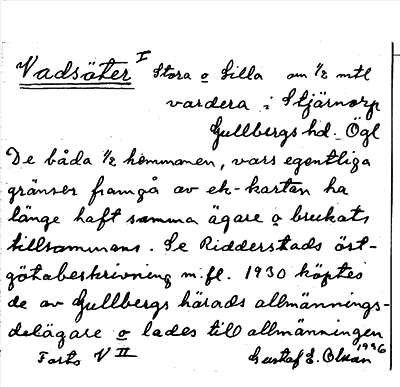 Vadsäter I Stora o Lilla om 1/2 mtl
vardera i Stjärnorp
Gullbergs hd. Ögl
De båda 1/2 hemmanen, vars egentliga
gränser framgå av ek-kartan ha
länge haft samma ägare o brukats
tillsammans. Se Ridderstads öst-
götabeskrivning m. fl. 1930 köptes
de av Gullbergs härads allmännings-
delägare o lades till allmänningen
Forts V II Gustaf E. Olsson 1996